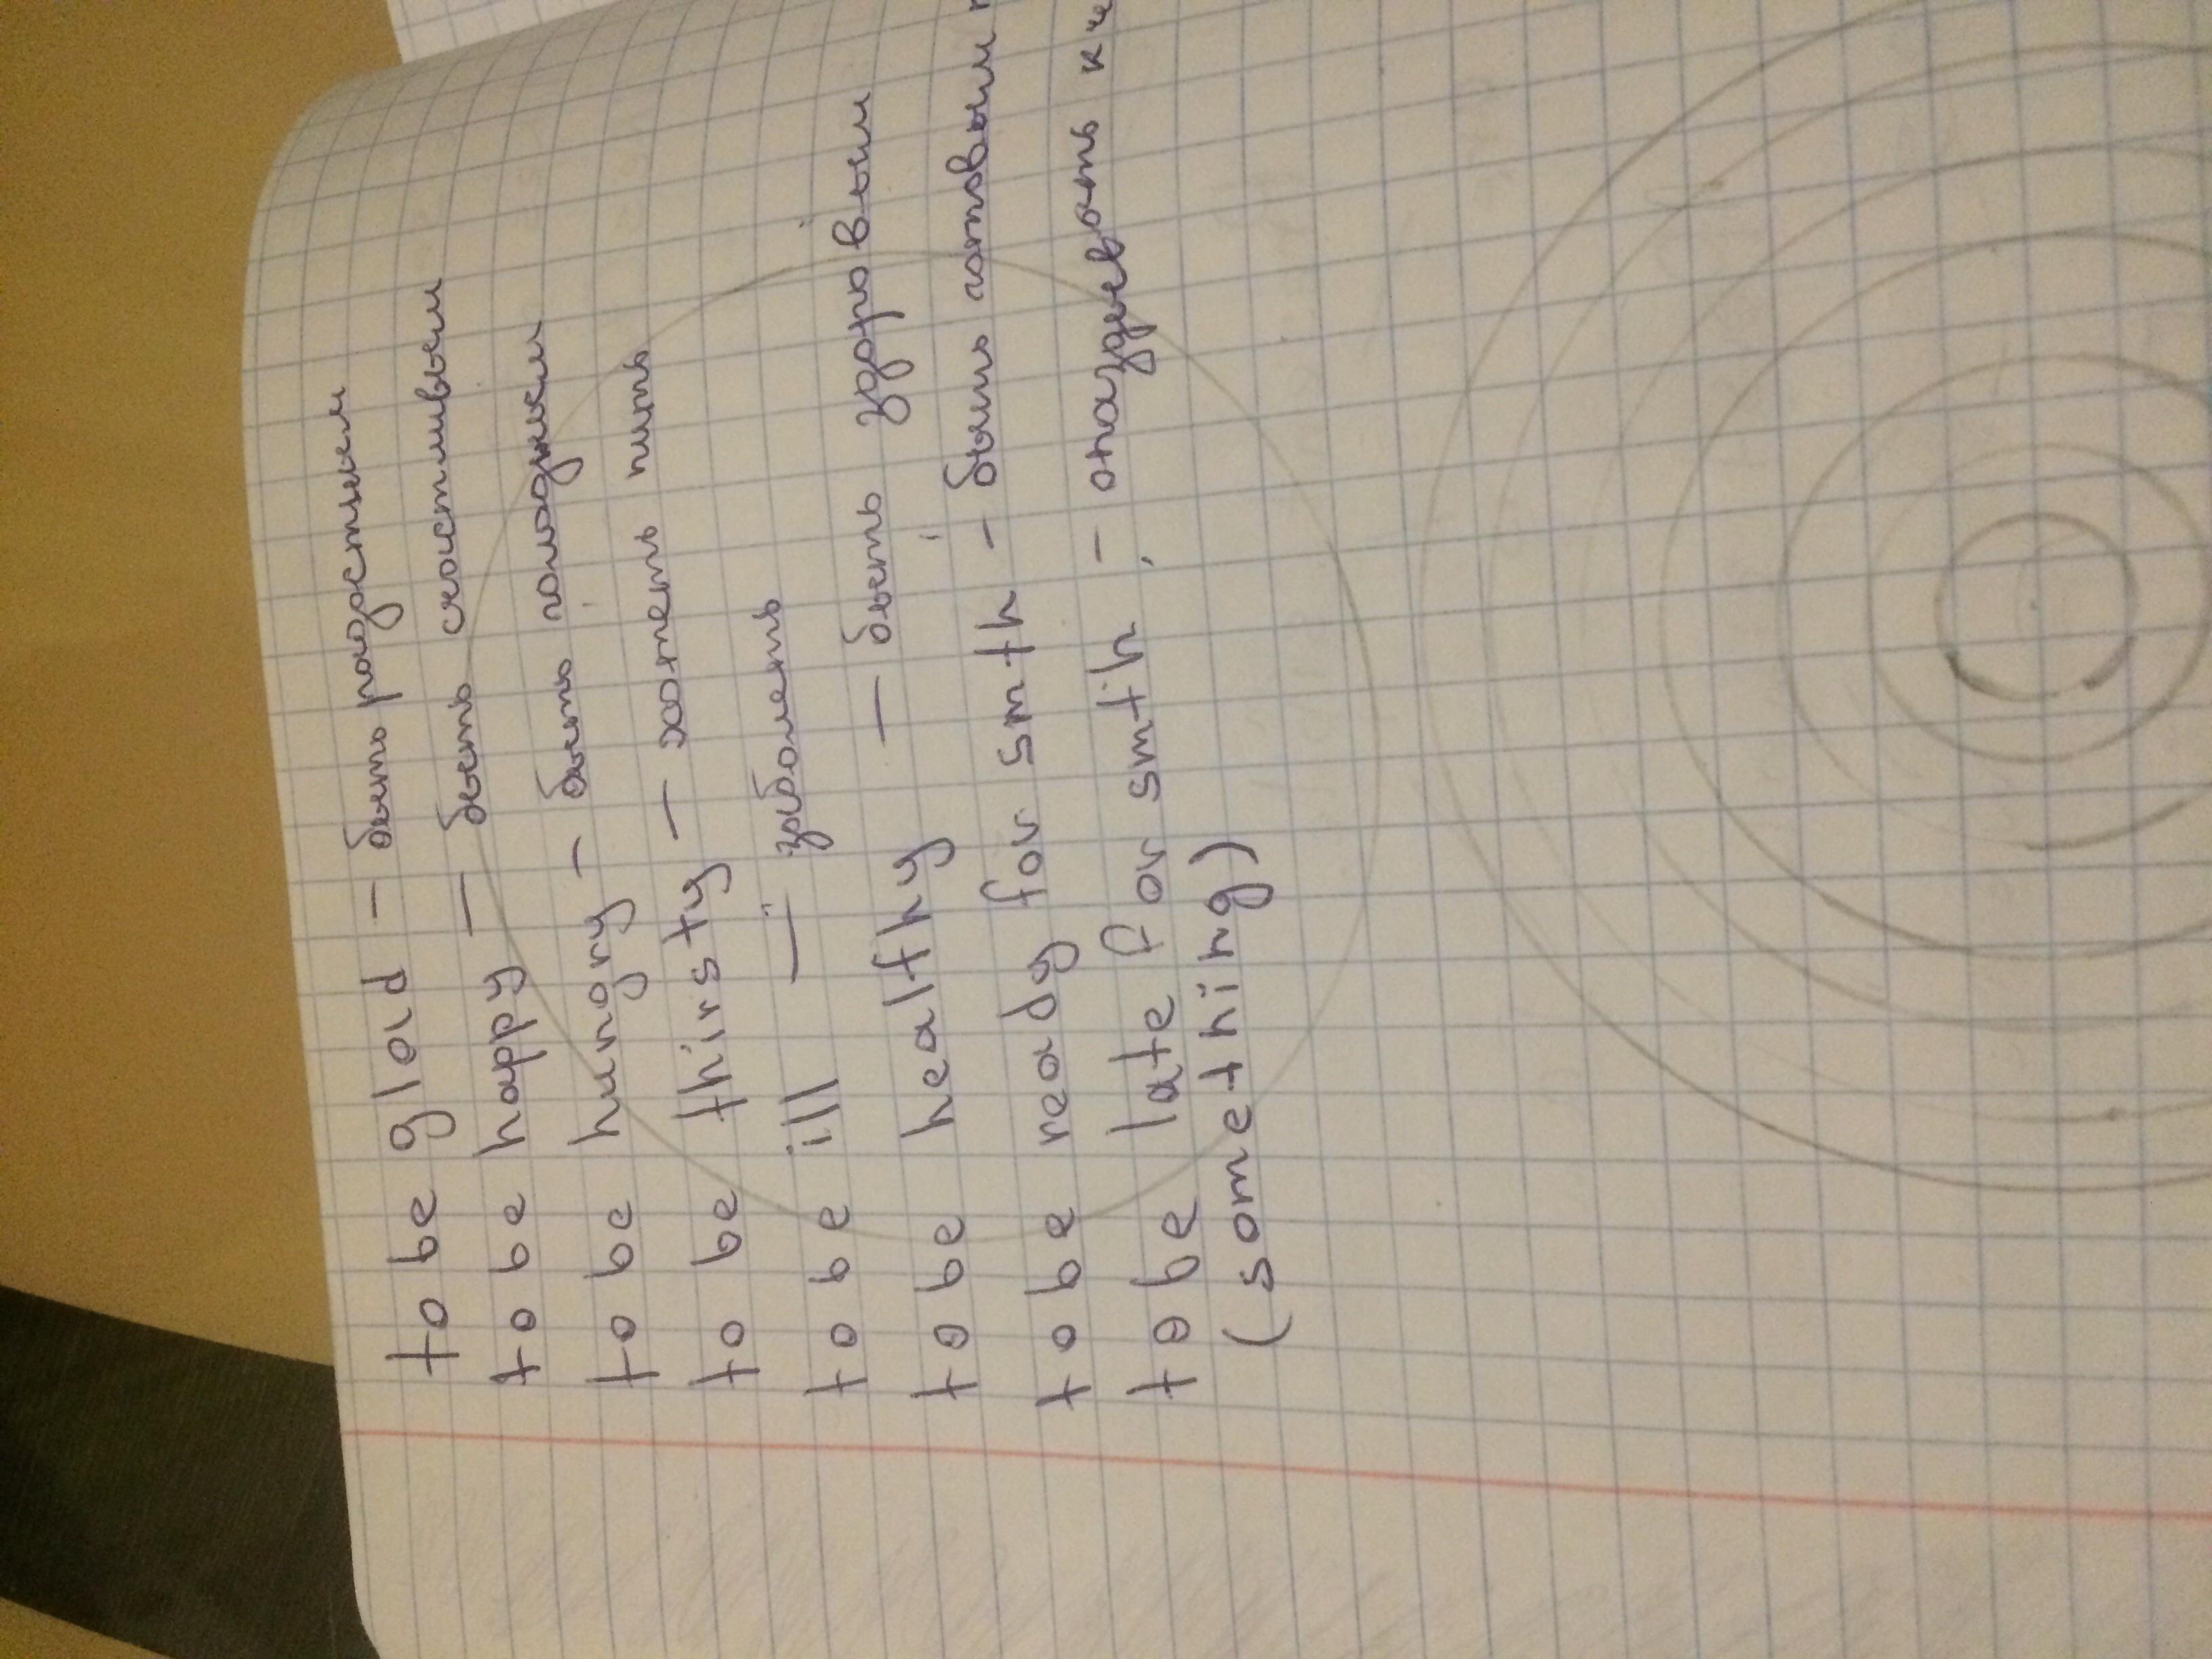 to be glad - быть радостным
to be happy - быть счастливым
to be hungry - быть голодным
to be thirsty - хотеть пить
to be ill - заболеть
to be healthy - быть здоровым
to be ready for smth - быть готовым
to be late for smth - опаздывать к
(something)